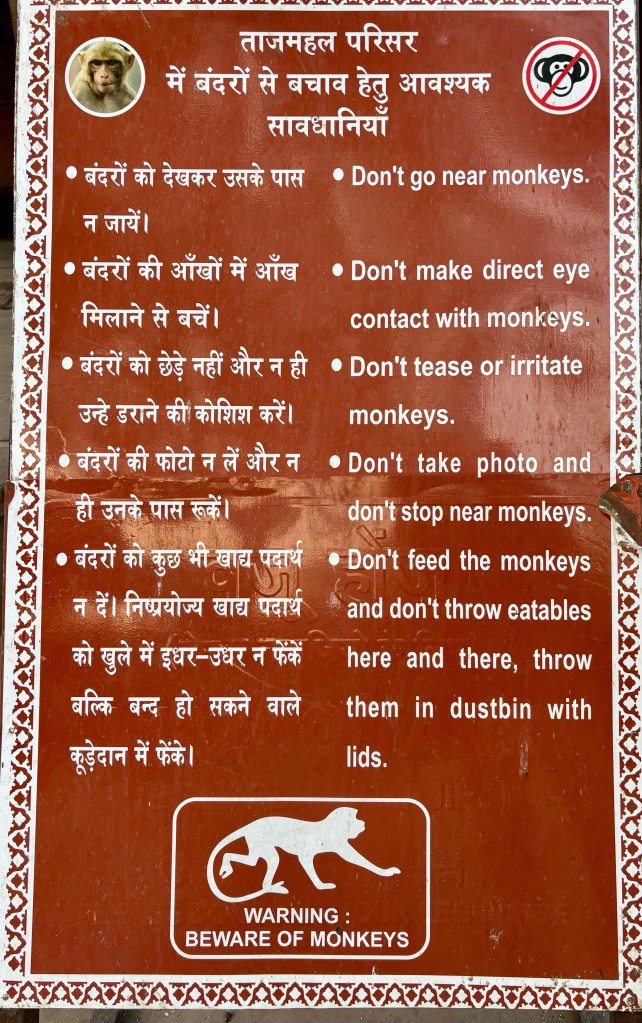 ताजमहल परिसर
में बंदरों से बचाव हेतु आवश्यक
सावधानियाँ
• बंदरों को देखकर उसके पास
न जायें।
• बंदरों की आँखों में आँख
मिलाने से बचें।
• बंदरों को छेड़े नहीं और न ही
उन्हे डराने की कोशिश करें।
• बंदरों की फोटो न लें और न
ही उनके पास रूकें।
• बंदरों को कुछ भी खाद्य पदार्थ
न दें। निष्प्रयोज्य खाद्य पदार्थ
को खुले में इधर–उधर न फेंकें
बल्कि बन्द हो सकने वाले
कूड़ेदान में फेंके।
• Don't go near monkeys.
• Don't make direct eye
contact with monkeys.
• Don't tease or irritate
monkeys.
• Don't take photo and
don't stop near monkeys.
• Don't feed the monkeys
and don't throw eatables
here and there, throw
them in dustbin with
lids.
WARNING :
BEWARE OF MONKEYS